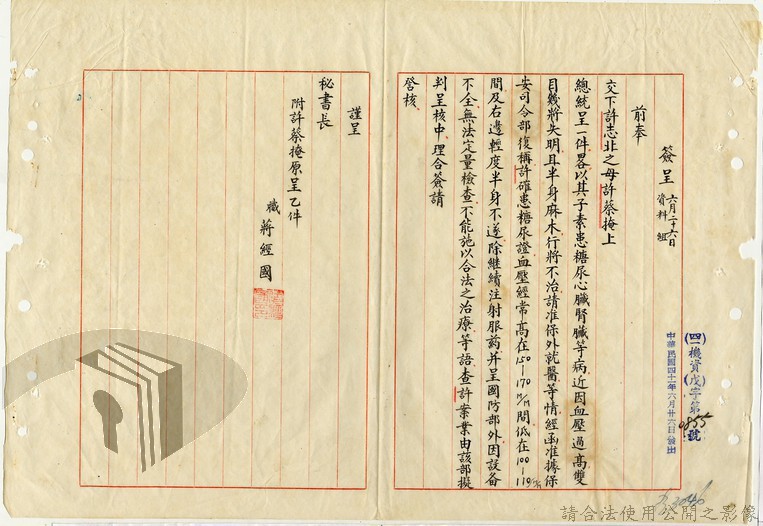 簽呈 六月二十六日
資料組
前奉
交下許志北之母許蔡掩上
總統呈一件畧以其子素患糖尿心臟腎臟等病近因血壓過高雙
目幾將失明且半身麻木行將不治請准保外就醫等情經函准據保
安司令部復稱許確患糖尿證血壓經常高在150—170M/M間低在100—110M/M
間及右邊輕度半身不遂除繼續注射服药并呈國防部外因設备
不全無法定量檢查不能施以合法之治療等語查許案業由該部擬
判呈核中理合簽請
詧核
謹呈
秘書長
附許蔡掩原呈乙件
職 蔣經國
(四一)機資(戊)字第0855號
中華民國四十一年六月廿六日發出
請合法使用公開之影像